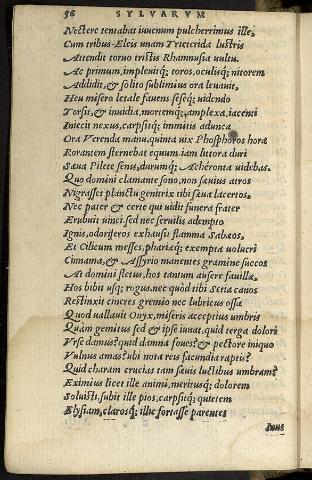 56 SYLVARVM
Nectere tentabat iuuenum pulcherrimus ille,
Cum tribus Eleis unam Trieterida lustris
Attendit toruo tristis Rhamnusia uultu.
Ac primum, impleuitq; toros, oculisq; nitorem
Addidit, & solito sublimius ora leuauit.
Heu misero letale fauens seseq; uidendo
Torsit, & inuidia, mortemq; amplexa iacenti
Iniecit nexus, carpsitq; immitis adunca
Ora Verenda manu, quinta uix Phosphoros hora
Rorantem sternebat equum, iam littora duri
Saua Pilete senis, durumq; Acheronta uidebas.
Quo domini clamante sono, non sæuius atros
Nigrasset planctu genitrix tibi sæua lacertos.
Nec pater & certe qui uidit funera frater
Erubuit uinci, sed nec seruilis adempto
Ignis, odoriferos exhausit flamma Sabæos.
Et Cilicum messes, phariaq; exempta uolucri
Cinnama, & Assyrio manentes gramine succos
At domini fletus, hos tantum ausere fauillæ.
Hos bibit usq; rogus, nec quòd tibi Setia canos
Restinxit cineres gremio nec lubricus ossa
Quod uallauit Onyx, miseris acceptius umbris
Quam gemitus sed & ipse iuuat, quid terga dolori
Vrse damus? quid damna foues? & pectore iniquo
Vulnus amas? ubi nota reis facundia raptis?
Quid charam crucias tam sæuis luctibus umbram?
Eximius licet ille animi, meritusq; dolorem
Soluisti, subit ille pios, carpsitq; quietem
Elysiam, clarosq; illic fortasse parentes